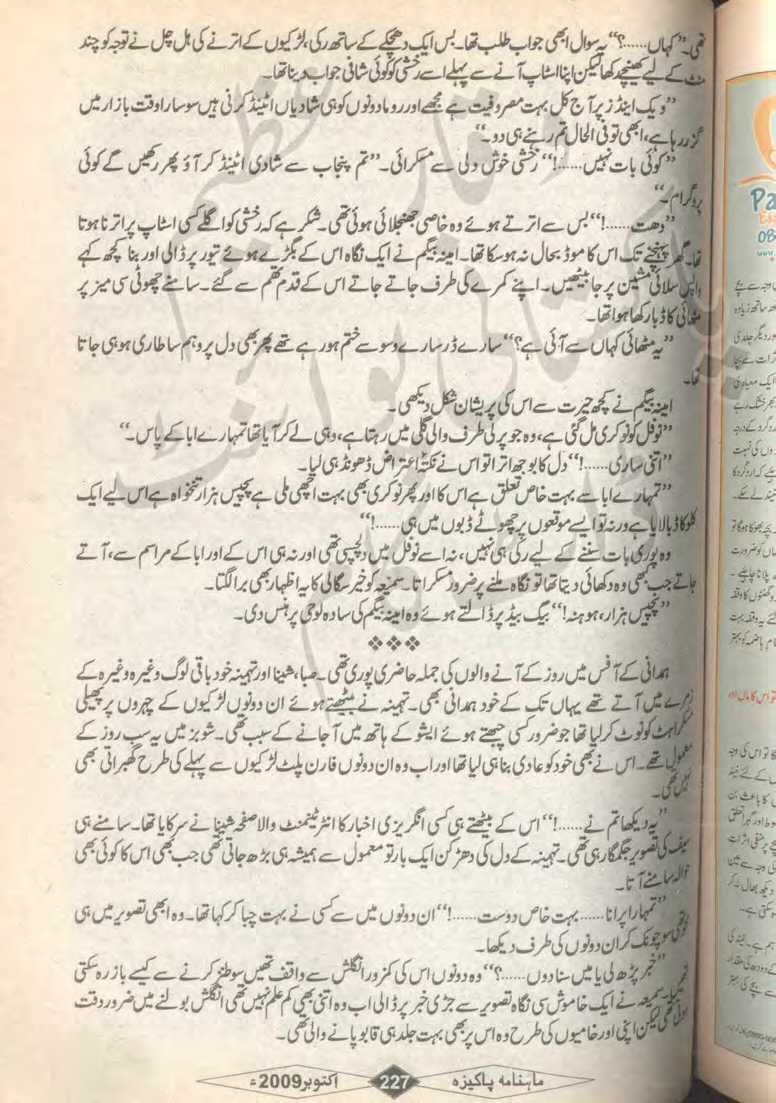 تھی۔ ”کہاں......؟“ یہ سوال ابھی جواب طلب تھا۔ بس ایک دھچکے کے ساتھ رکی، لڑکیوں کے اترنے کی ہل چل نے توجہ کو چند
منٹ کے لیے کھینچے رکھا لیکن اپنا اسٹاپ آنے سے پہلے اسے رخشی کو کوئی شافی جواب دینا تھا۔
”ویک اینڈز پر آج کل بہت مصروفیت ہے مجھے اور روما دونوں کو ہی شادیاں اٹینڈ کرنی ہیں سو سارا وقت بازار میں
گزر رہا ہے، ابھی تو فی الحال تم رہنے ہی دو۔“
”کوئی بات نہیں......!“ رخشی خوش دلی سے مسکرائی۔ ”تم پنجاب سے شادی اٹینڈ کر آؤ پھر رکھیں گے کوئی
پروگرام۔“
”دھت......!“ بس سے اترتے ہوئے وہ خاصی جھنجلائی ہوئی تھی۔ شکر ہے کہ رخشی کو اگلے کسی اسٹاپ پر اترنا ہوتا
تھا۔ گھر پہنچنے تک اس کا موڈ بحال نہ ہو سکا تھا۔ امینہ بیگم نے ایک نگاہ اس کے بگڑے ہوئے تیور پر ڈالی اور بنا کچھ کہے
واپس سلائی مشین پر جا بیٹھیں۔ اپنے کمرے کی طرف جاتے جاتے اس کے قدم تھم سے گئے۔ سامنے چھوٹی سی میز پر
مٹھائی کا ڈبا رکھا ہوا تھا۔
”یہ مٹھائی کہاں سے آئی ہے؟“ سارے ڈر سارے وسوسے ختم ہو رہے تھے پھر بھی دل پر وہم سا طاری ہو ہی جاتا
تھا۔
امینہ بیگم نے کچھ حیرت سے اس کی پریشان شکل دیکھی۔
”نوفل کو نوکری مل گئی ہے، وہ جو پرلی طرف والی گلی میں رہتا ہے، وہی لے کر آیا تھا تمہارے ابا کے پاس۔“
”اتنی ساری......!“ دل کا بوجھ اترا تو اس نے نکتۂ اعتراض ڈھونڈ ہی لیا۔
”تمہارے ابا سے بہت خاص تعلق ہے اس کا اور پھر نوکری بھی بہت اچھی ملی ہے پچیس ہزار تنخواہ ہے اس لیے ایک
کلو کا ڈبا لایا ہے ورنہ تو ایسے موقعوں پر چھوٹے ڈبوں میں ہی......!“
وہ پوری بات سننے کے لیے رکی ہی نہیں، نہ اسے نوفل میں دلچسپی تھی اور نہ ہی اس کے اور ابا کے مراسم سے، آتے
جاتے جب بھی وہ دکھائی دیتا تھا تو نگاہ ملنے پر ضرور مسکراتا۔ سمیعہ کو خیر سگالی کا یہ اظہار بھی برا لگتا۔
”پچیس ہزار، ہونہہ!“ بیگ بیڈ پر ڈالتے ہوئے وہ امینہ بیگم کی سادہ لوحی پر ہنس دی۔
ہمدانی کے آفس میں روز کے آنے والوں کی جملہ حاضری پوری تھی۔ صبا، شینا اور تہمینہ خود باقی لوگ وغیرہ وغیرہ کے
زمرے میں آتے تھے یہاں تک کے خود ہمدانی بھی۔ تہمینہ نے بیٹھتے ہوئے ان دونوں لڑکیوں کے چہروں پر پھیلی
مسکراہٹ کو نوٹ کر لیا تھا جو ضرور کسی چبھتے ہوئے ایشو کے ہاتھ میں آ جانے کے سبب تھی۔ شوبز میں یہ سب روز کے
معمول تھے۔ اس نے بھی خود کو عادی بنا ہی لیا تھا اور اب وہ ان دونوں فارن پلٹ لڑکیوں سے پہلے کی طرح گھبراتی بھی
نہیں تھی۔
”یہ دیکھا تم نے......!“ اس کے بیٹھتے ہی کسی انگریزی اخبار کا انٹرٹینمنٹ والا صفحہ شینا نے سرکایا تھا۔ سامنے ہی
سیف کی تصویر جگمگا رہی تھی۔ تہمینہ کے دل کی دھڑکن ایک بار تو معمول سے ہمیشہ ہی بڑھ جاتی تھی جب بھی اس کا کوئی بھی
حوالہ سامنے آتا۔
”تمہارا پرانا...... بہت خاص دوست......!“ ان دونوں میں سے کسی نے بہت چبا کر کہا تھا۔ وہ ابھی تصویر میں ہی
کھوئی تھی سو چونک کر ان دونوں کی طرف دیکھا۔
”خبر پڑھ لی یا میں سنا دوں......؟“ وہ دونوں اس کی کمزور انگلش سے واقف تھیں سو طنز کرنے سے کیسے باز رہ سکتی
تھیں۔ سمیعہ نے ایک خاموش سی نگاہ تصویر سے جڑی خبر پر ڈالی اب وہ اتنی بھی کم علم نہیں تھی انگلش بولنے میں ضرور دقت
ہوتی تھی لیکن اپنی اور خامیوں کی طرح وہ اس پر بھی بہت جلد ہی قابو پانے والی تھی۔
ماہنامہ پاکیزہ 227 اکتوبر 2009ء
Pa
08
www.